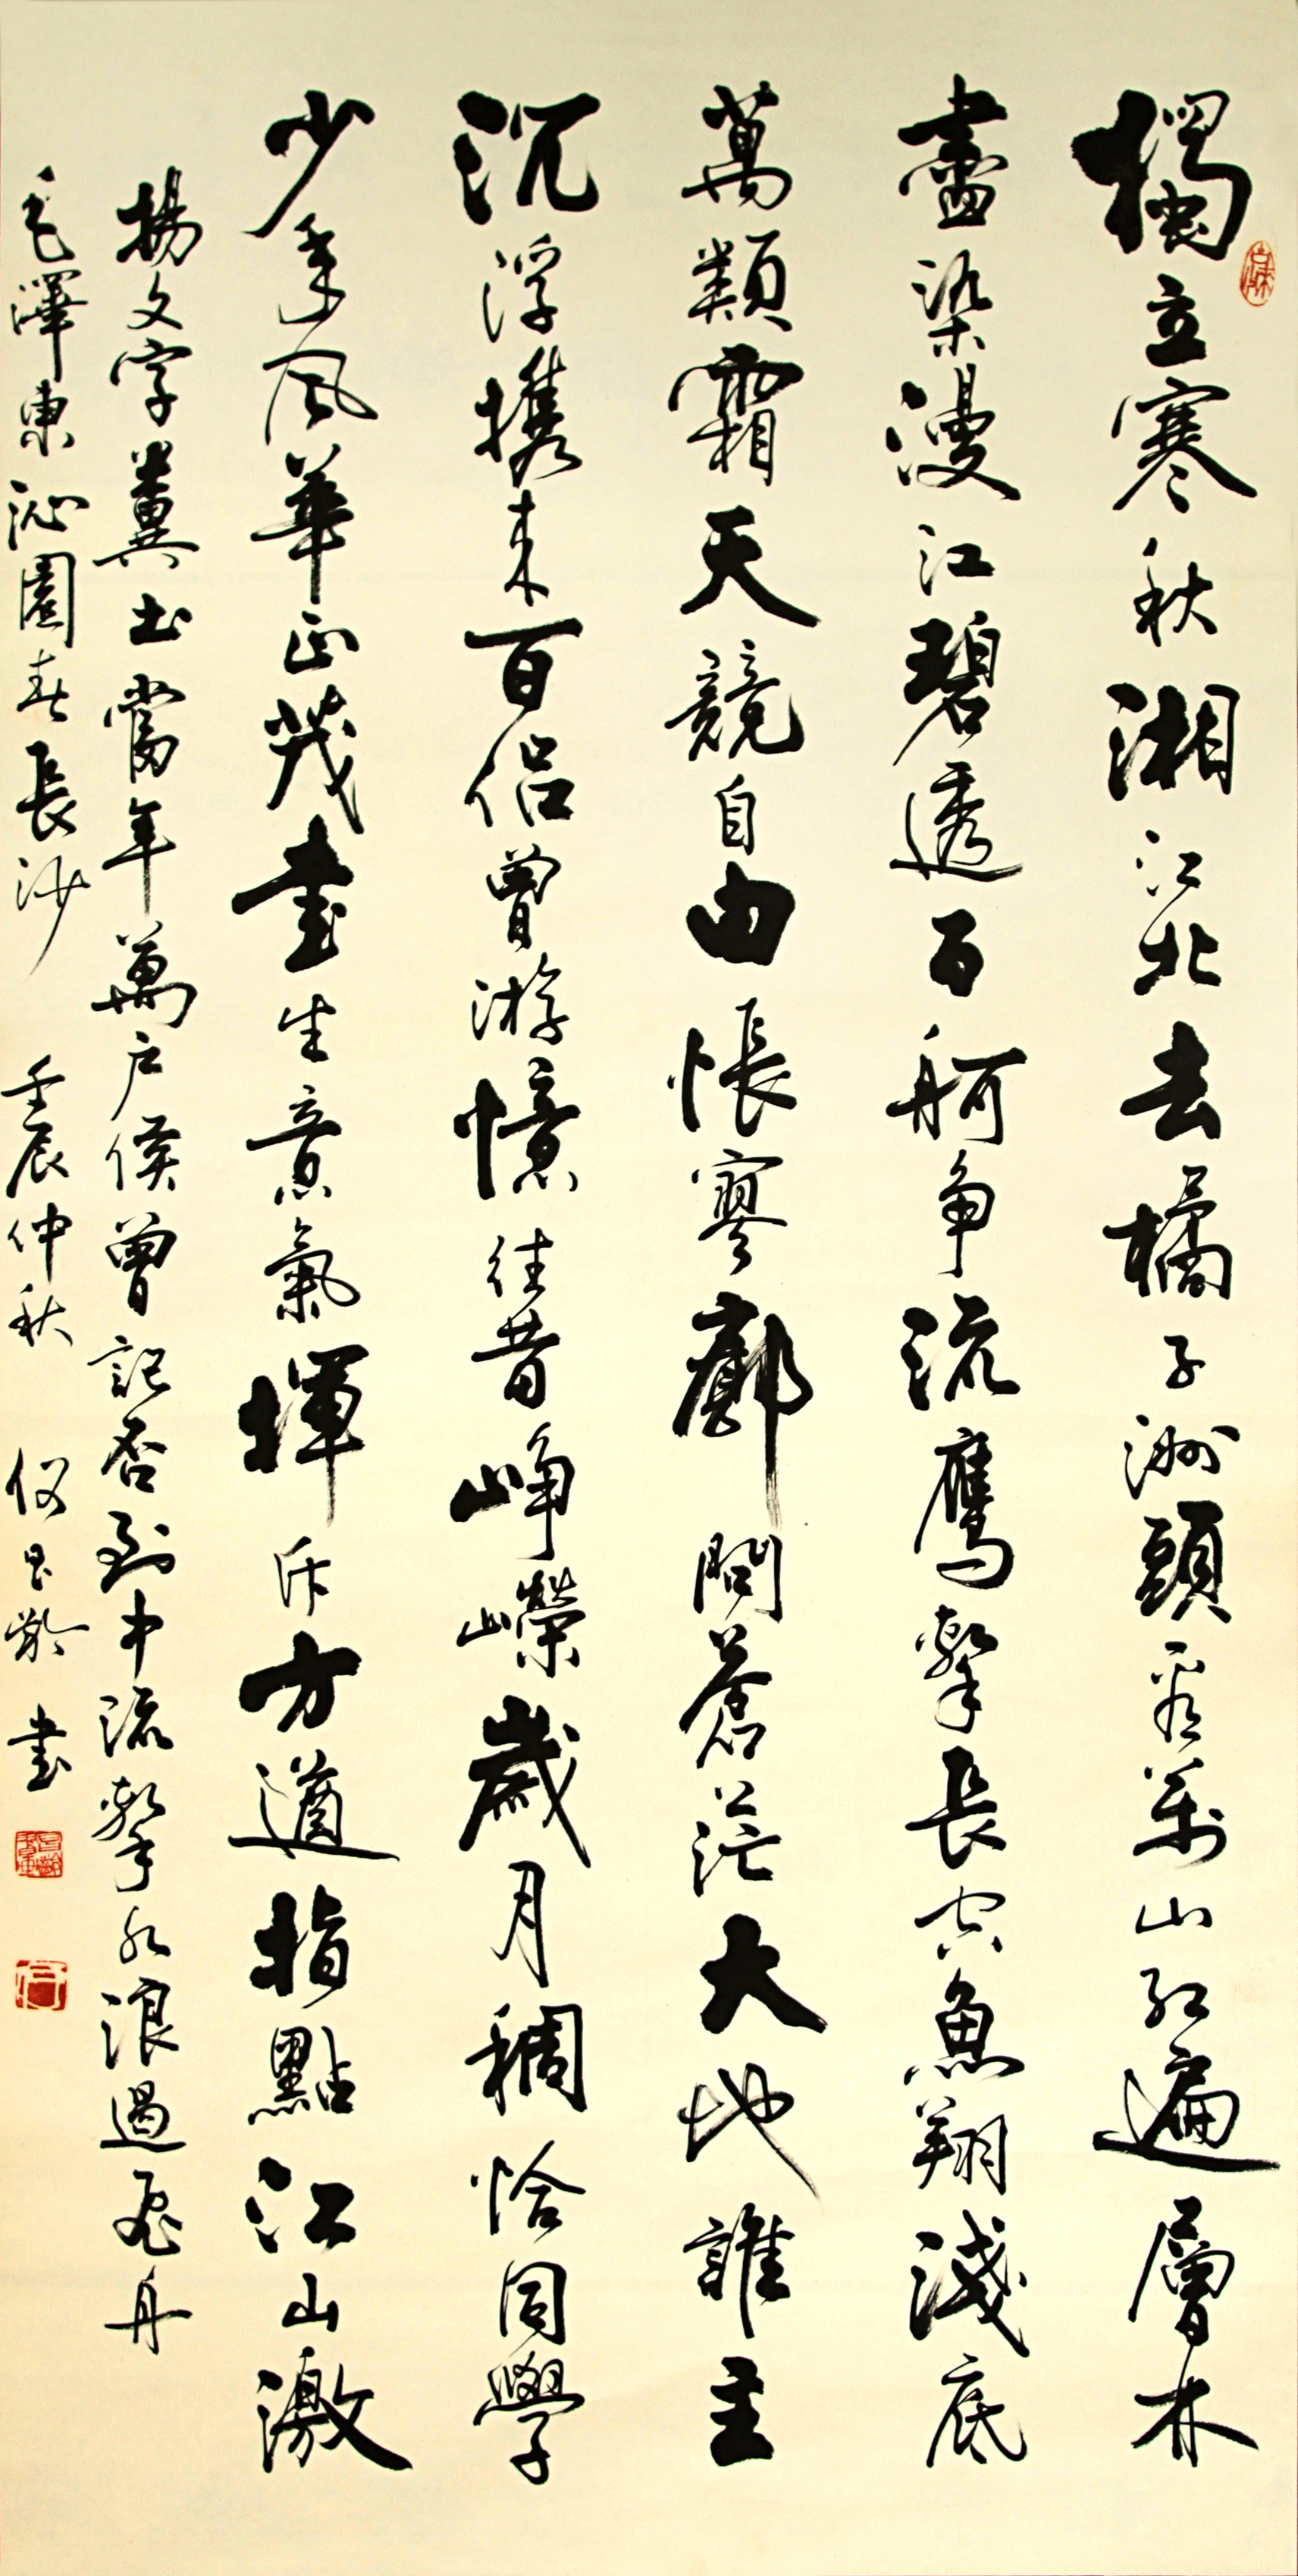 獨立寒秋湘江北去橘子洲頭看萬山紅遍層林
盡染漫江碧透百舸争流鷹擊長空魚翔淺底
萬類霜天競自由悵寥廓問蒼茫大地誰主
沉浮携来百侣曾游憶往昔峥嶸歲月稠恰同學
少年風華正茂書生意氣揮斥方遒指點江山激
揚文字糞土當年萬户侯曾記否到中流擊水浪遏飛舟
毛澤東沁園春長沙 壬辰仲秋 何昌齡 書